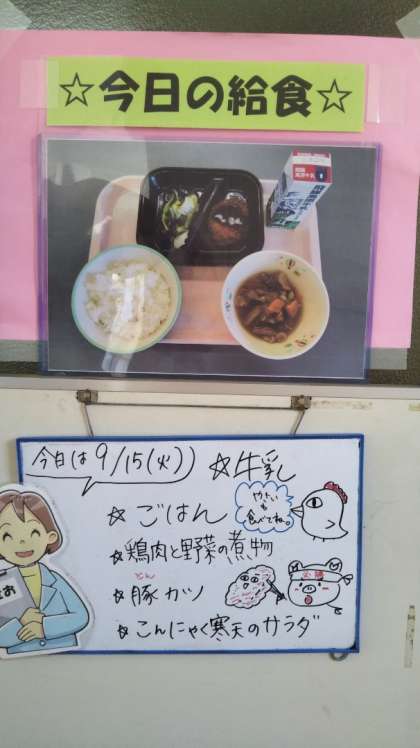 ☆今日の給食☆
今日は9/15(火)
☆牛乳
☆ごはん
やさいも
食べてね。
☆鶏肉と野菜の煮物
とん
☆豚カツ
必勝
☆こんにゃく寒天のサラダ